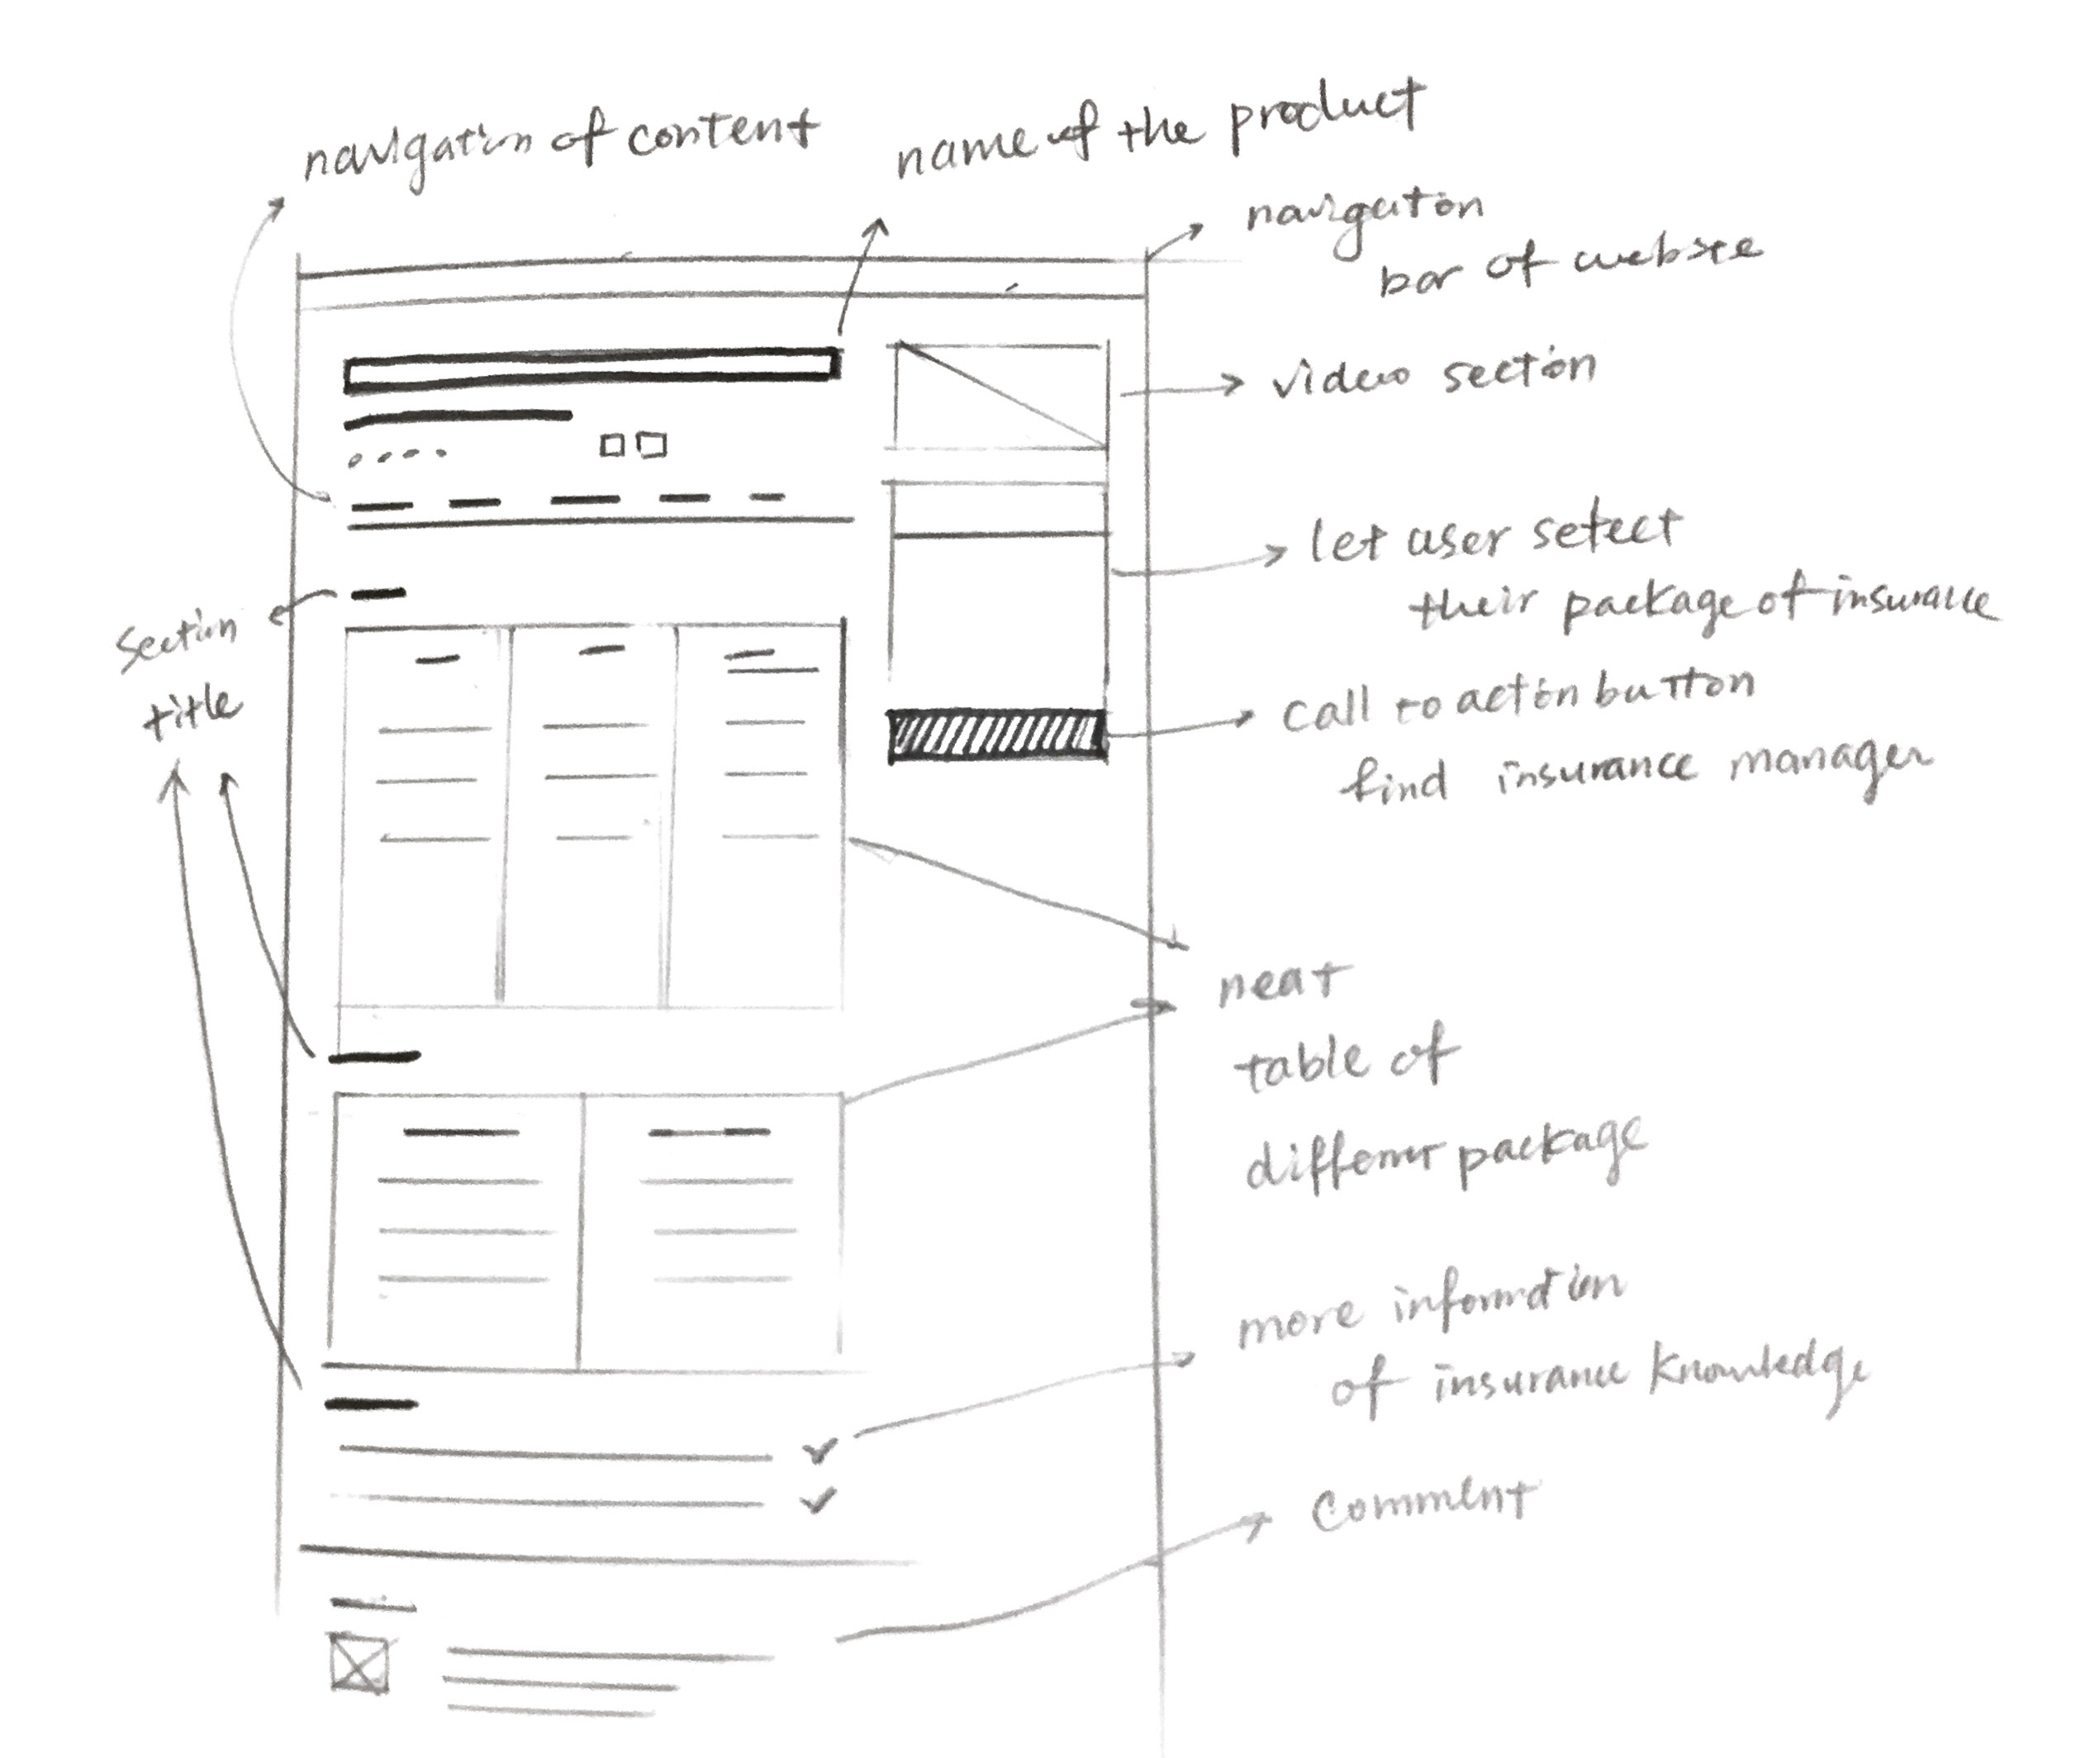 navigation of content
name of the product
navigation
bar of website
video section
let user select
their package of insurance
Section
title
call to action button
find insurance manager
neat
table of
different package
more information
of insurance knowledge
Comment